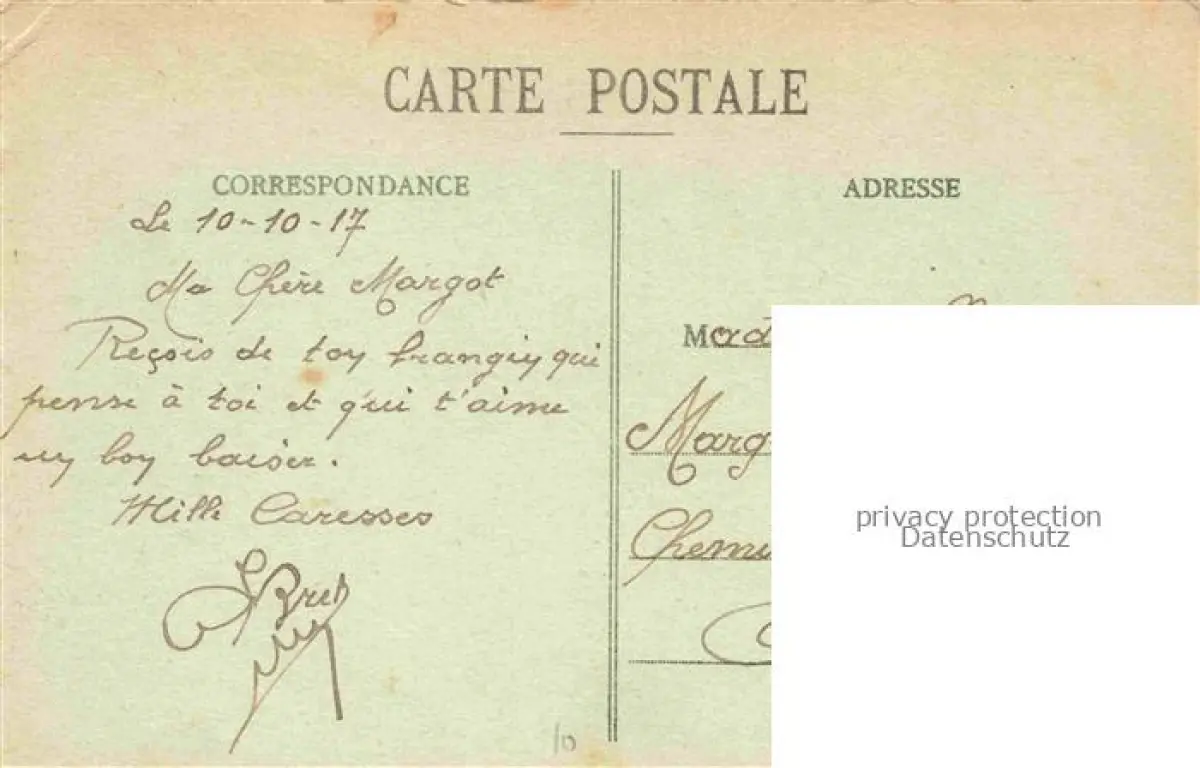 CARTE POSTALE
CORRESPONDANCE
Le 10-10-17
Ma Chère Margot
Reçois de ton frangin qui
pense à toi et qui t'aime
un bon baiser.
Mille Caresses
ADRESSE
Mad
Marg
Chemi
privacy protection
Datenschutz
10